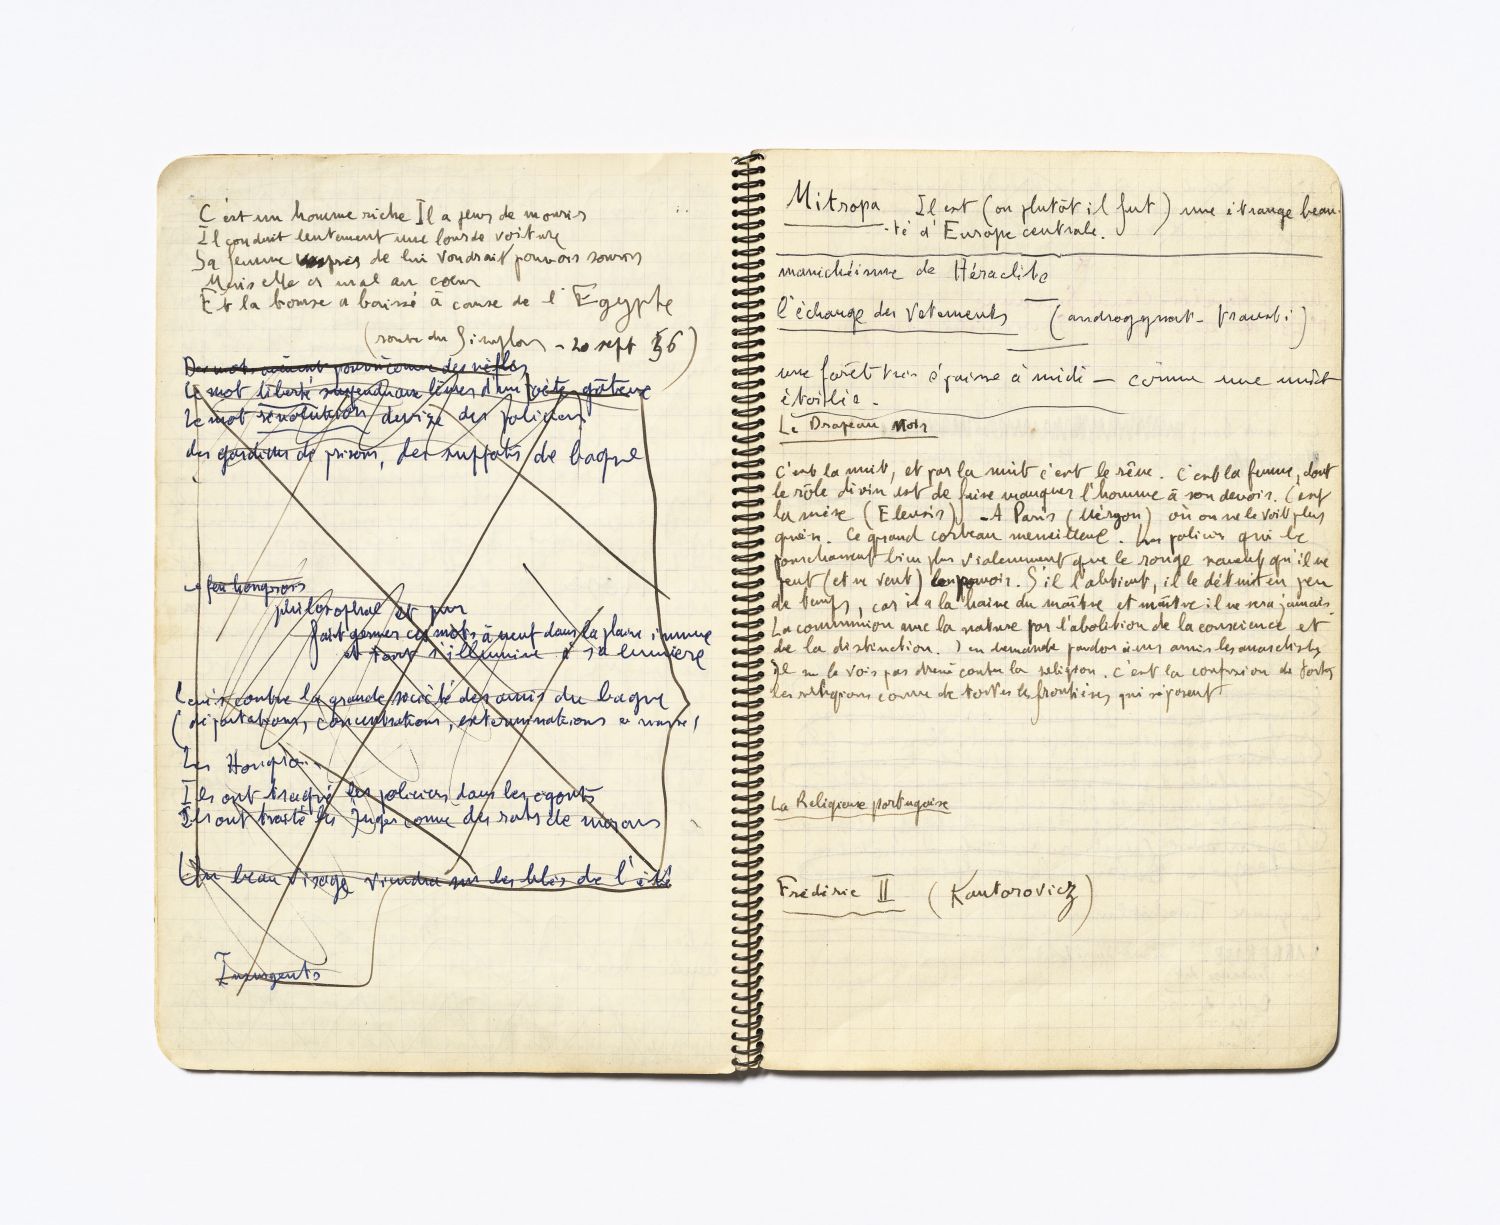 C'est un homme riche Il a peur de mourir
Il conduit lentement une lourde voiture
Sa femme près de lui voudrait pouvoir sourire
Mais elle a mal au cœur
Et la bourse a baissé à cause de l'Egypte
(route du Simplon - 20 sept 56)
Des mots
Le mot liberté lèvres d'un gâteux
Le mot révolution devise des policiers
des gardiens de prisons, des suppôts de bagne
feu hongrois
philosophal et pur
fait germer ces mots à vent dans la plaine immense
et tout s'illumine à sa lumière
contre la grande société des amis du bagne
(déportations, concentrations, exterminations en masse)
Les Hongrois
Ils ont traqué les policiers dans les égouts
Ils ont traité les juges comme des rats de marais
Un beau visage viendra sur les blés de l'été
Insurgents
Mitropa Il est (ou plutôt il fut) une étrange beau-
-té d'Europe centrale.
manichéisme de Héraclite
l'échange des vêtements (androgynat - travesti)
une forêt très épaisse à midi - comme une nuit
étoilée.
Le Drapeau noir
C'est la nuit, et par la nuit c'est le rêve. C'est la femme, dont
le rôle divin est de faire manquer l'homme à son devoir. C'est
la mère (Eleusis). - A Paris (Méryon) où on ne le voit plus
guère. Ce grand corbeau merveilleux. Les policiers qui le
pourchassent bien plus violemment que le rouge savent qu'il ne
peut (et ne veut) pouvoir. S'il l'obtient, il le détruit en peu
de temps, car il a la haine du maître et maître il ne sera jamais.
La communion avec la nature par l'abolition de la conscience et
de la distinction. J'en demande pardon à mes amis les anarchistes
je ne le vois pas dressé contre la religion. C'est la confusion de toutes
les religions comme de toutes les frontières qui séparent
La Religieuse portugaise
Frédéric II (Kantorovicz)